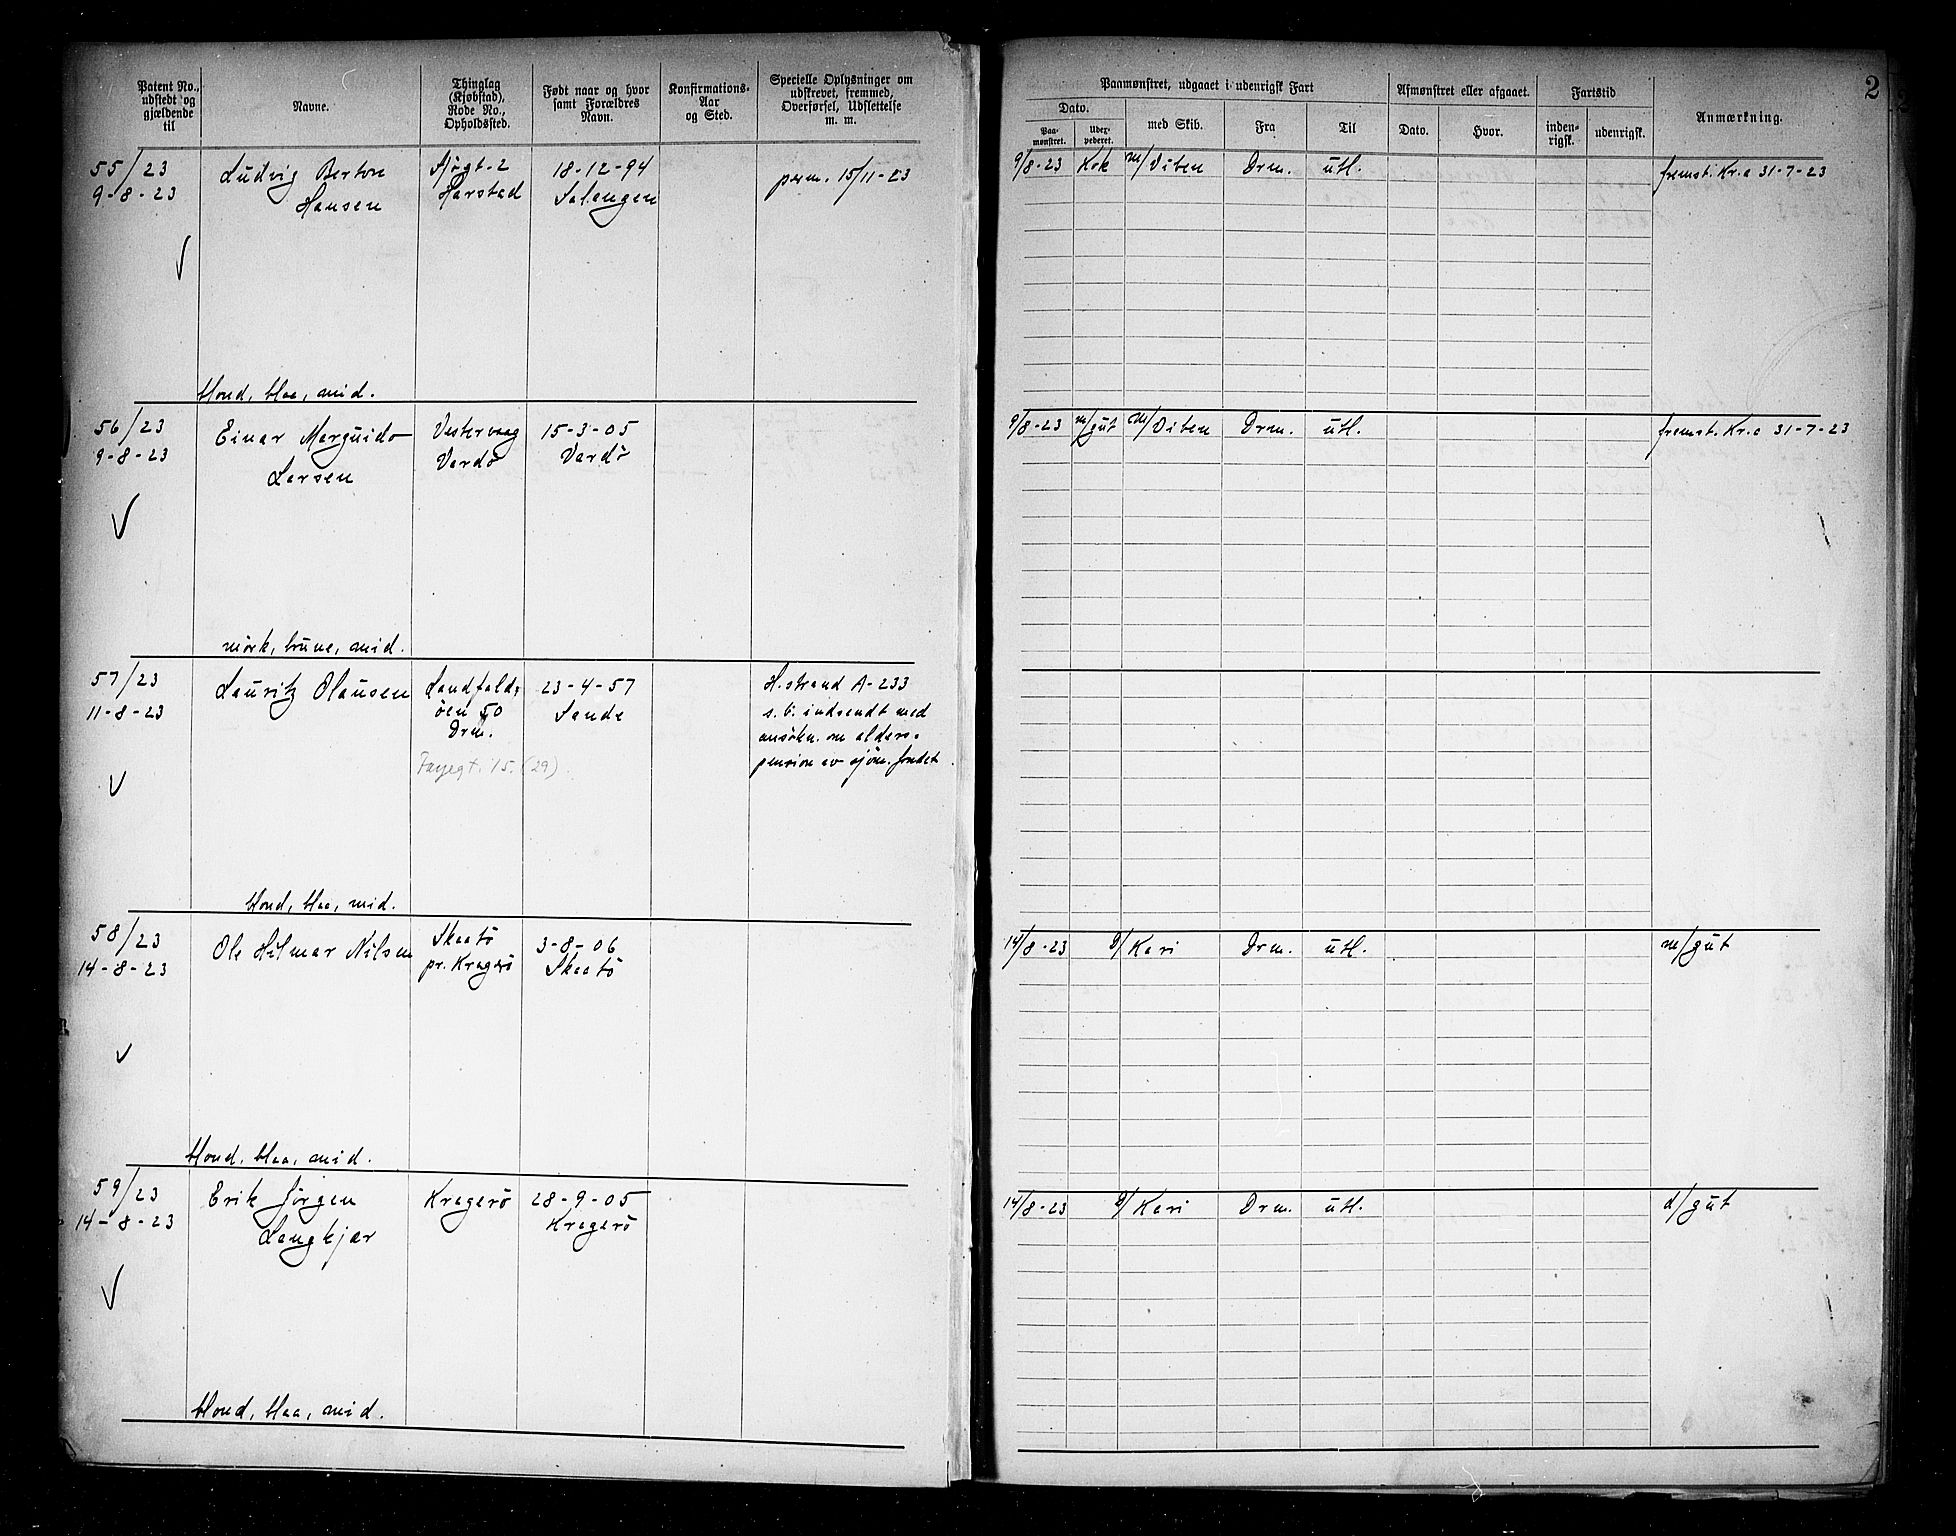 Patent No., udstedt og gjældende til
Navne.
Thinglag (Kjøbstad), Rode No., Opholdssted.
Født naar og hvor samt Forældres Navn.
Konfirmations-Aar og Sted.
Specielle Oplysninger om udskrevet, fremmed, Overførsel, Udslettelse m. m.
Paamønstret, udgaaet i udenrigsk Fart
Dato.
Paa-mønstret.
med Skib.
Fra
Til
Afmønstret eller afgaaet.
Dato.
Hvor.
Fartstid
inden-rigsk.
udenrigsk.
Anmærkning.
2
55/23
9-8-23
Ludvig
Hansen
Sjøgt-2
Harstad
18-12-94
Salangen
perm. 15/11-23
9/8-23 Kok m/Viben Drm. utl.
fremst. Kr.a 31-7-23
blond, blaa, mid.
56/23
9-8-23
Einar
Larsen
Vardö
15-3-05
Vardö
9/8-23 m/gut m/Viben Drm. utl.
fremst. Kr.a 31-7-23
mörk, brune, mid.
57/23
11-8-23
Lauritz Olausen
Landfalds-
öen 50
Drm.
23-4-57
Sande
H.strand A-233
s.b. indsendt med
ansökn. om alders-
pension av sjöm.fondet.
blond, blaa, mid.
58/23
14-8-23
Ole Hilmar Nilsen
Skaatö
pr. Kragerö
3-8-06
Skaatö
14/8-23 D/Kari Drm. utl.
m/gut
blond, blaa, mid.
59/23
14-8-23
Erik Jörgen
Langkjær
Kragerö
28-9-05
Kragerö
14/8-23 D/Kari Drm. utl.
d/gut
blond, blaa, mid.